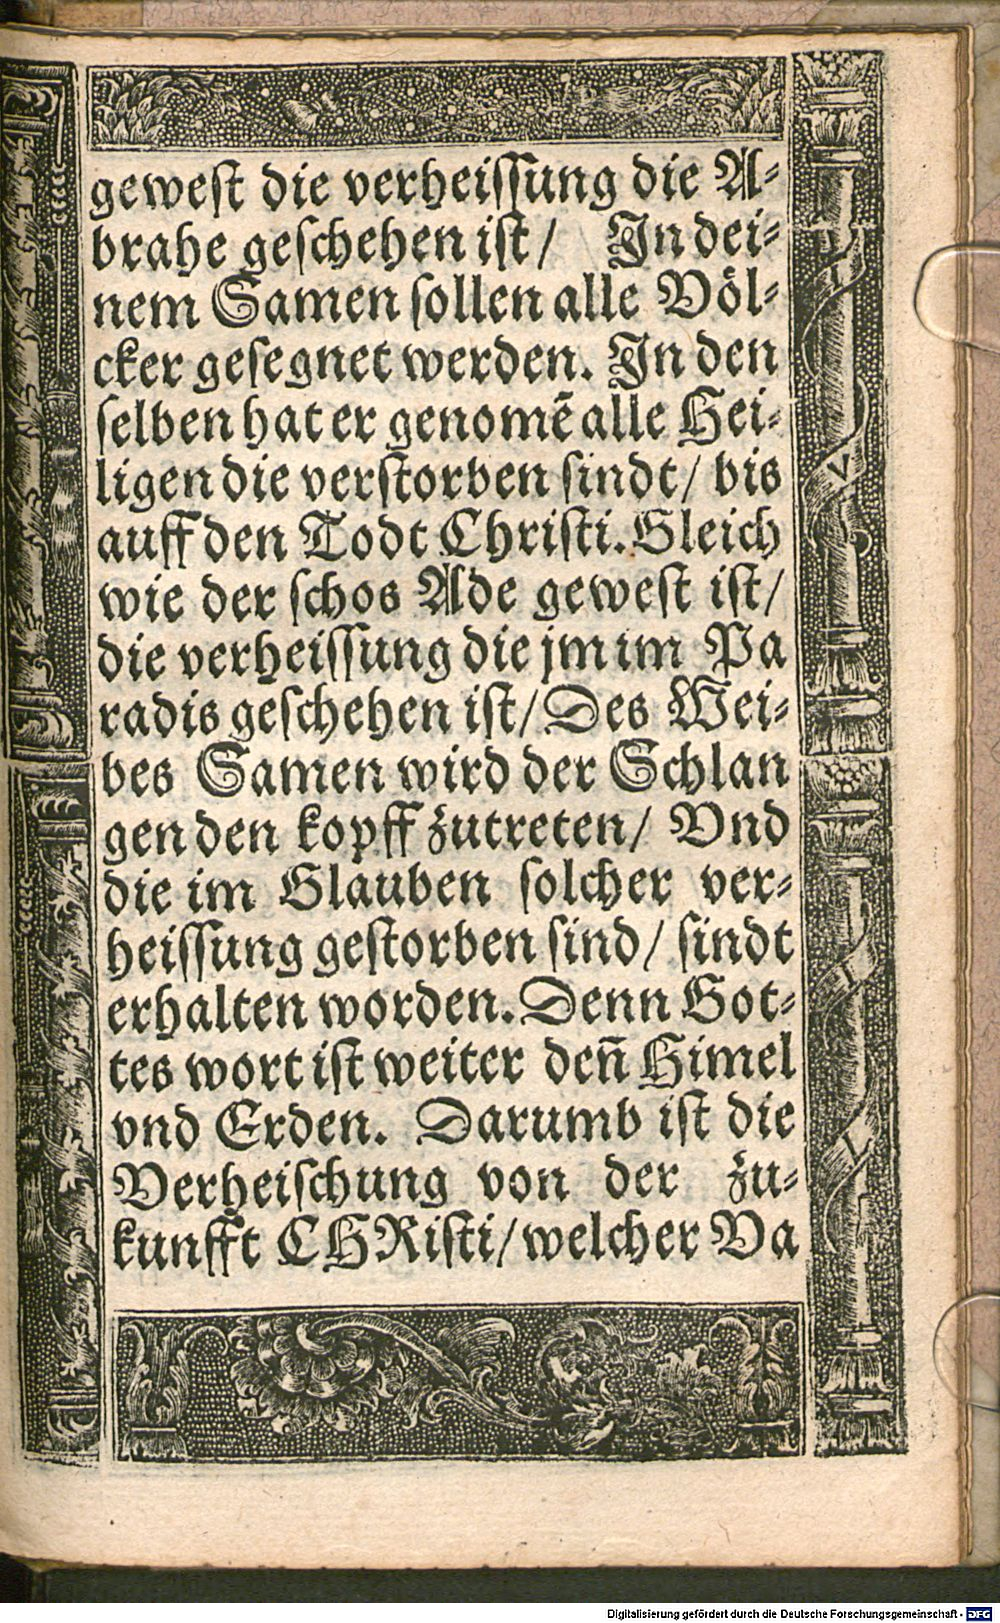 gewest die verheissung die A-
brahe geschehen ist/ In dei-
nem Samen sollen alle Völ-
cker gesegnet werden. In den
selben hat er genomẽ alle Hei-
ligen die verstorben sindt/ bis
auff den Todt Christi. Gleich
wie der schos Ade gewest ist/
die verheissung die jm im Pa
radis geschehen ist/ Des Wei-
bes Samen wird der Schlan
gen den kopff zutreten/ Vnd
die im Glauben solcher ver-
heissung gestorben sind/ sindt
erhalten worden. Denn Got-
tes wort ist weiter deñ Himel
vnd Erden. Darumb ist die
Verheischung von der zu-
kunfft CHRisti/ welcher Va
Digitalisierung gefördert durch die Deutsche Forschungsgemeinschaft - DFG